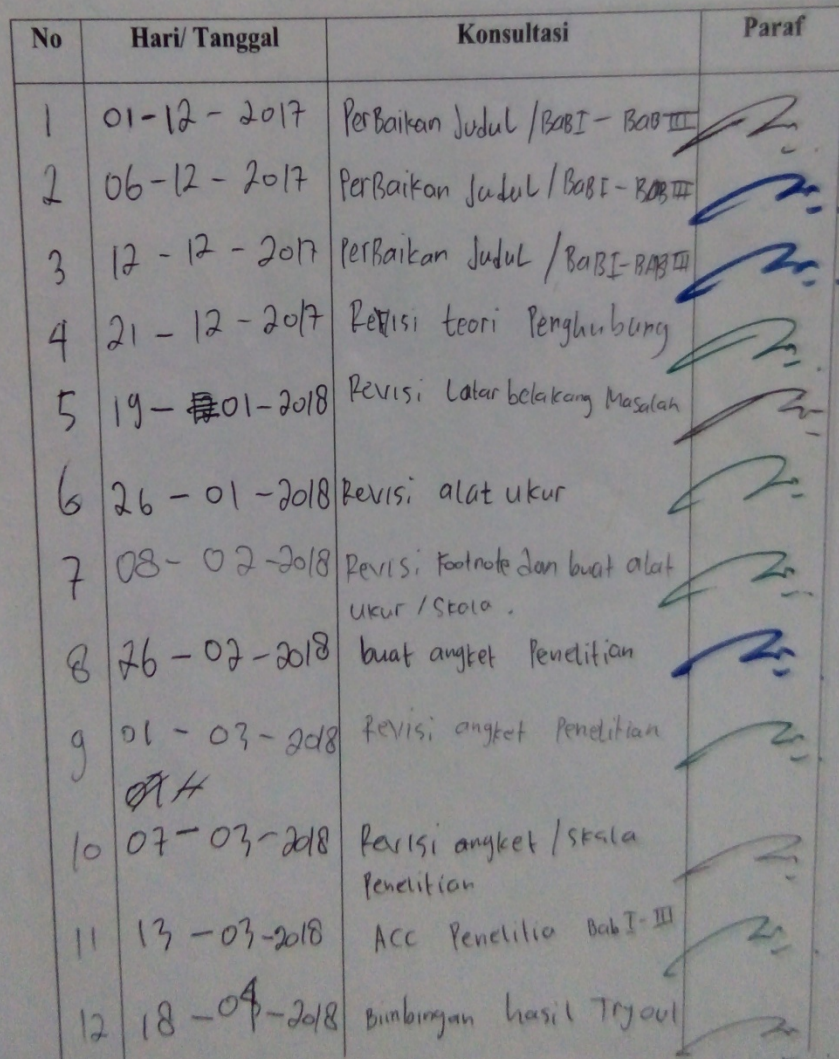 No Hari/ Tanggal Konsultasi Paraf
1 01-12-2017 PerBaikan Judul /BaBI - BaB III
2 06-12-2017 PerBaikan Judul /BaBI - BAB III
3 12-12-2017 PerBaikan Judul /BaBI-BAB III
4 21-12-2017 Revisi teori Penghubung
5 19-01-2018 Revisi Latar belakang Masalah
6 26-01-2018 Revisi alat ukur
7 08-02-2018 Revisi Footnote dan buat alat
ukur /Skala.
8 26-02-2018 buat angket Penelitian
9 01-03-2018 Revisi angket Penelitian
10 07-03-2018 Revisi angket /Skala
Penelitian
11 13-03-2018 ACC Penelitia Bab I-III
12 18-04-2018 Bimbingan hasil Tryout